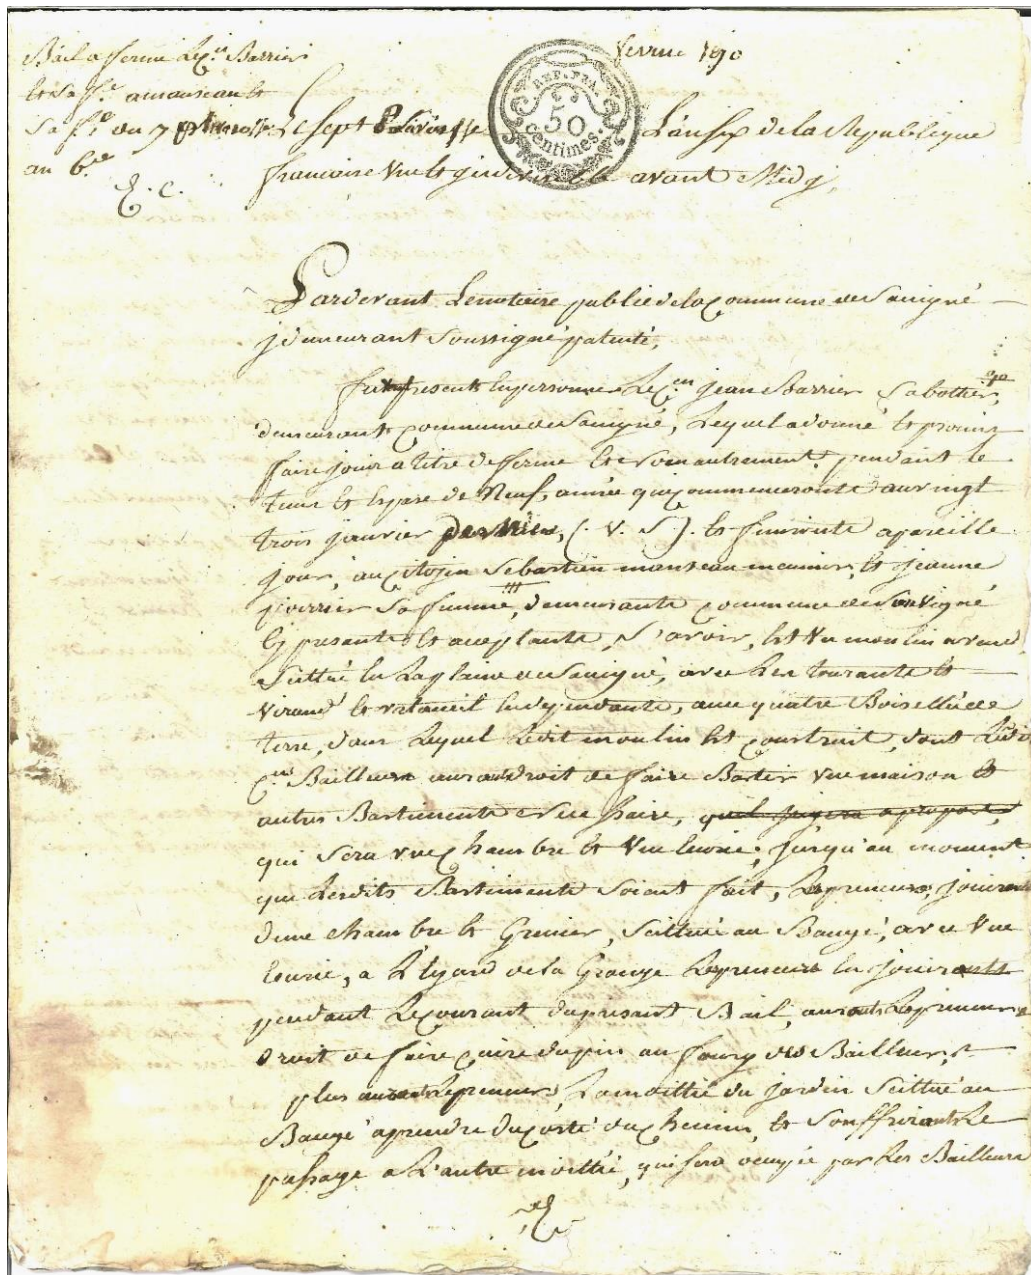 Bail a ferme Le Cen Barrier
et sa fe a manseau et
sa fe du 7 pluviose
an 6e
E. C.
fevrier 1790
REP. FRA.
50
centimes.
Le sept Pluviôse L'an six de la Republique
francaise une et indivisible avant Midy,
Pardevant Le notaire public de la Commune de Savigné
y demeurant Soussigné patenté,
fut present en personne Le Cen jean Barrier Sabottier,
demeurant Commune de Savigné, Lequel a donné et promis
faire jouir a titre de ferme et non autrement, pendant le
tems et espase de Neuf, année qui commenceronts au vingt
trois janvier dernier, (. V. S). et finironts a pareille
jour, au Citojin Sebastien manseau meunier, et jeanne
poirrier Sa femme, demeurants Commune de Savigné
Cy presants et acceptants, S'avoir, est Un moulin a vend
Scittué en La plaine de Savigné, avec Les tourants et
Virand et ratancil en dependants, avec quatre Boisellée de
terre, dans Lequel Ledit moulin est Construit, dont Ledi
Cen Bailleur aura droit de faire Bastir une maison et
autres Bastiments et Une haire, quil jugera apropost,
qui sera une Chambre et Une Ecurie, jusqu'au moment
que Lesdits Bastiments Soiant fait, Le preneurs, jouiron
d'une chambre et Grenier, Scittué au Baugé, avec Une
Ecurie, a L'Egard de la Grange Le preneurs en jouironts
pendant Le Courant du presant Bail, auronts Le preneurs
droit de faire Cuire du pin au fourg des Bailleur,
plus auronts Le preneurs, La moittié du jardin Scittué au
Baugé a prendre du Costé du Chemin, et Souffrironts Le
passage a L'autre moittié, qui sera occupée par Les Bailleurs